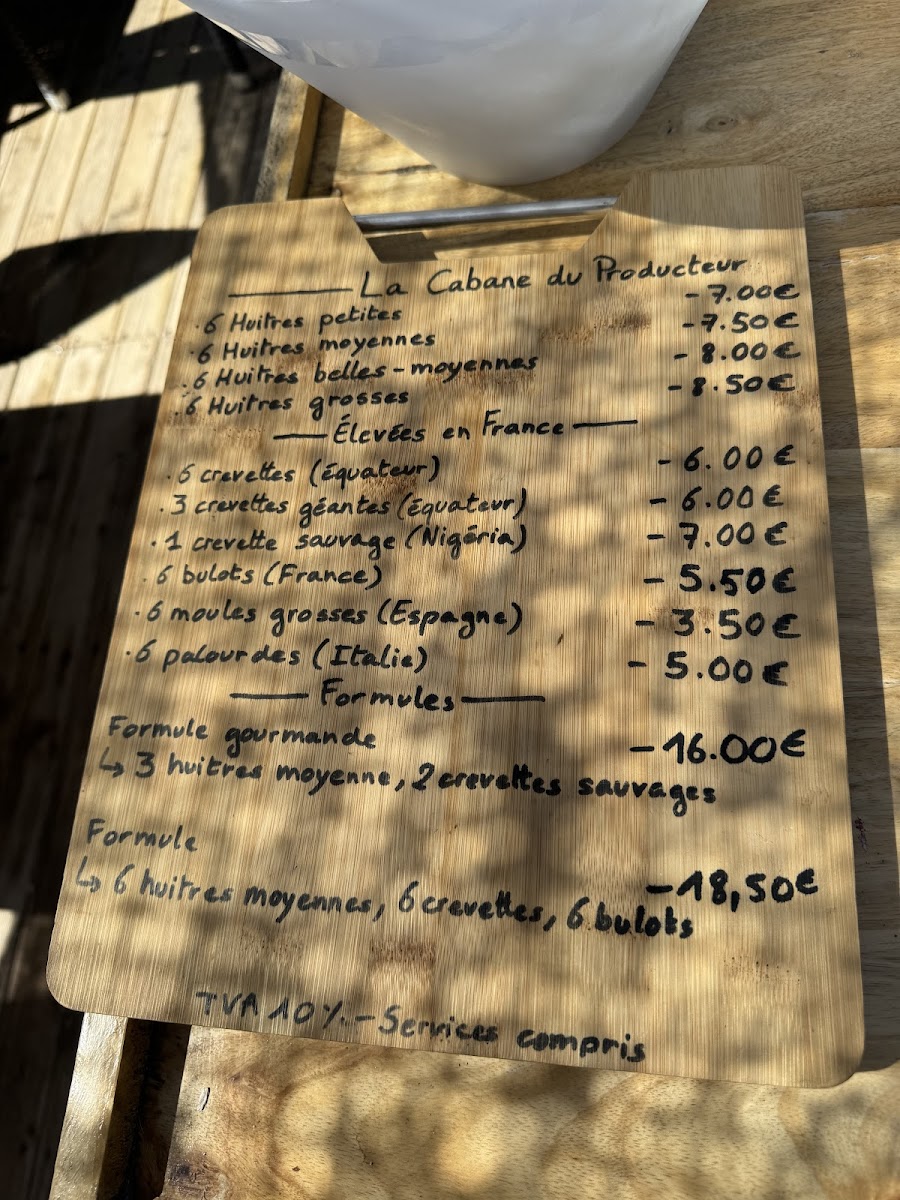 La Cabane du Producteur
. 6 Huitres petites - 7.00€
. 6 Huitres moyennes - 7.50€
. 6 Huitres belles-moyennes - 8.00€
. 6 Huitres grosses - 8.50€
Élevées en France
. 6 crevettes (équateur) - 6.00€
. 3 crevettes géantes (équateur) - 6.00€
. 1 crevette sauvage (Nigéria) - 7.00€
. 6 bulots (France) - 5.50€
. 6 moules grosses (Espagne) - 3.50€
. 6 palourdes (Italie) - 5.00€
Formules
Formule gourmande - 16.00€
↳ 3 huitres moyenne, 2 crevettes sauvages
Formule - 18,50€
↳ 6 huitres moyennes, 6 crevettes, 6 bulots
TVA 10%. - Services compris